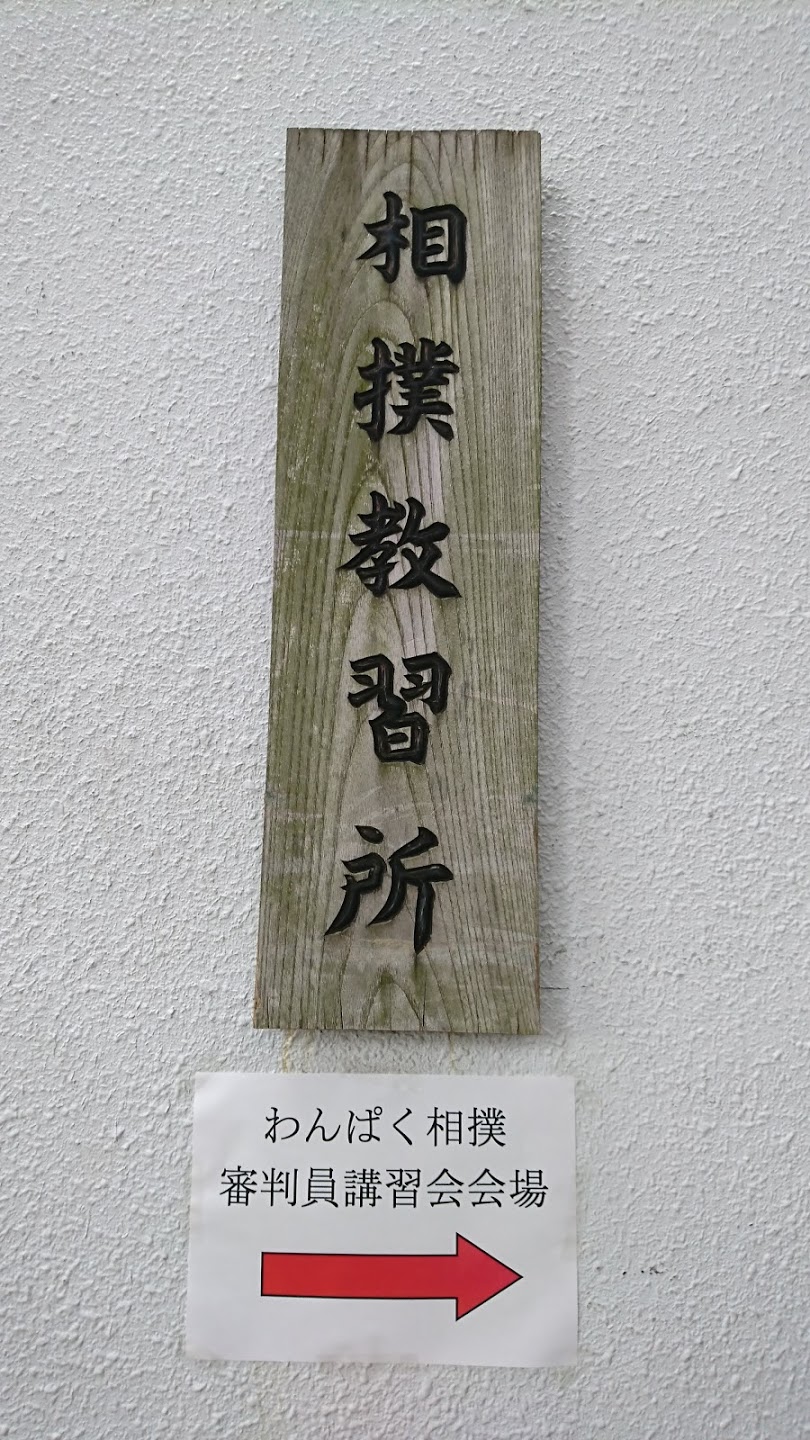 相撲教習所
わんぱく相撲
審判員講習会会場